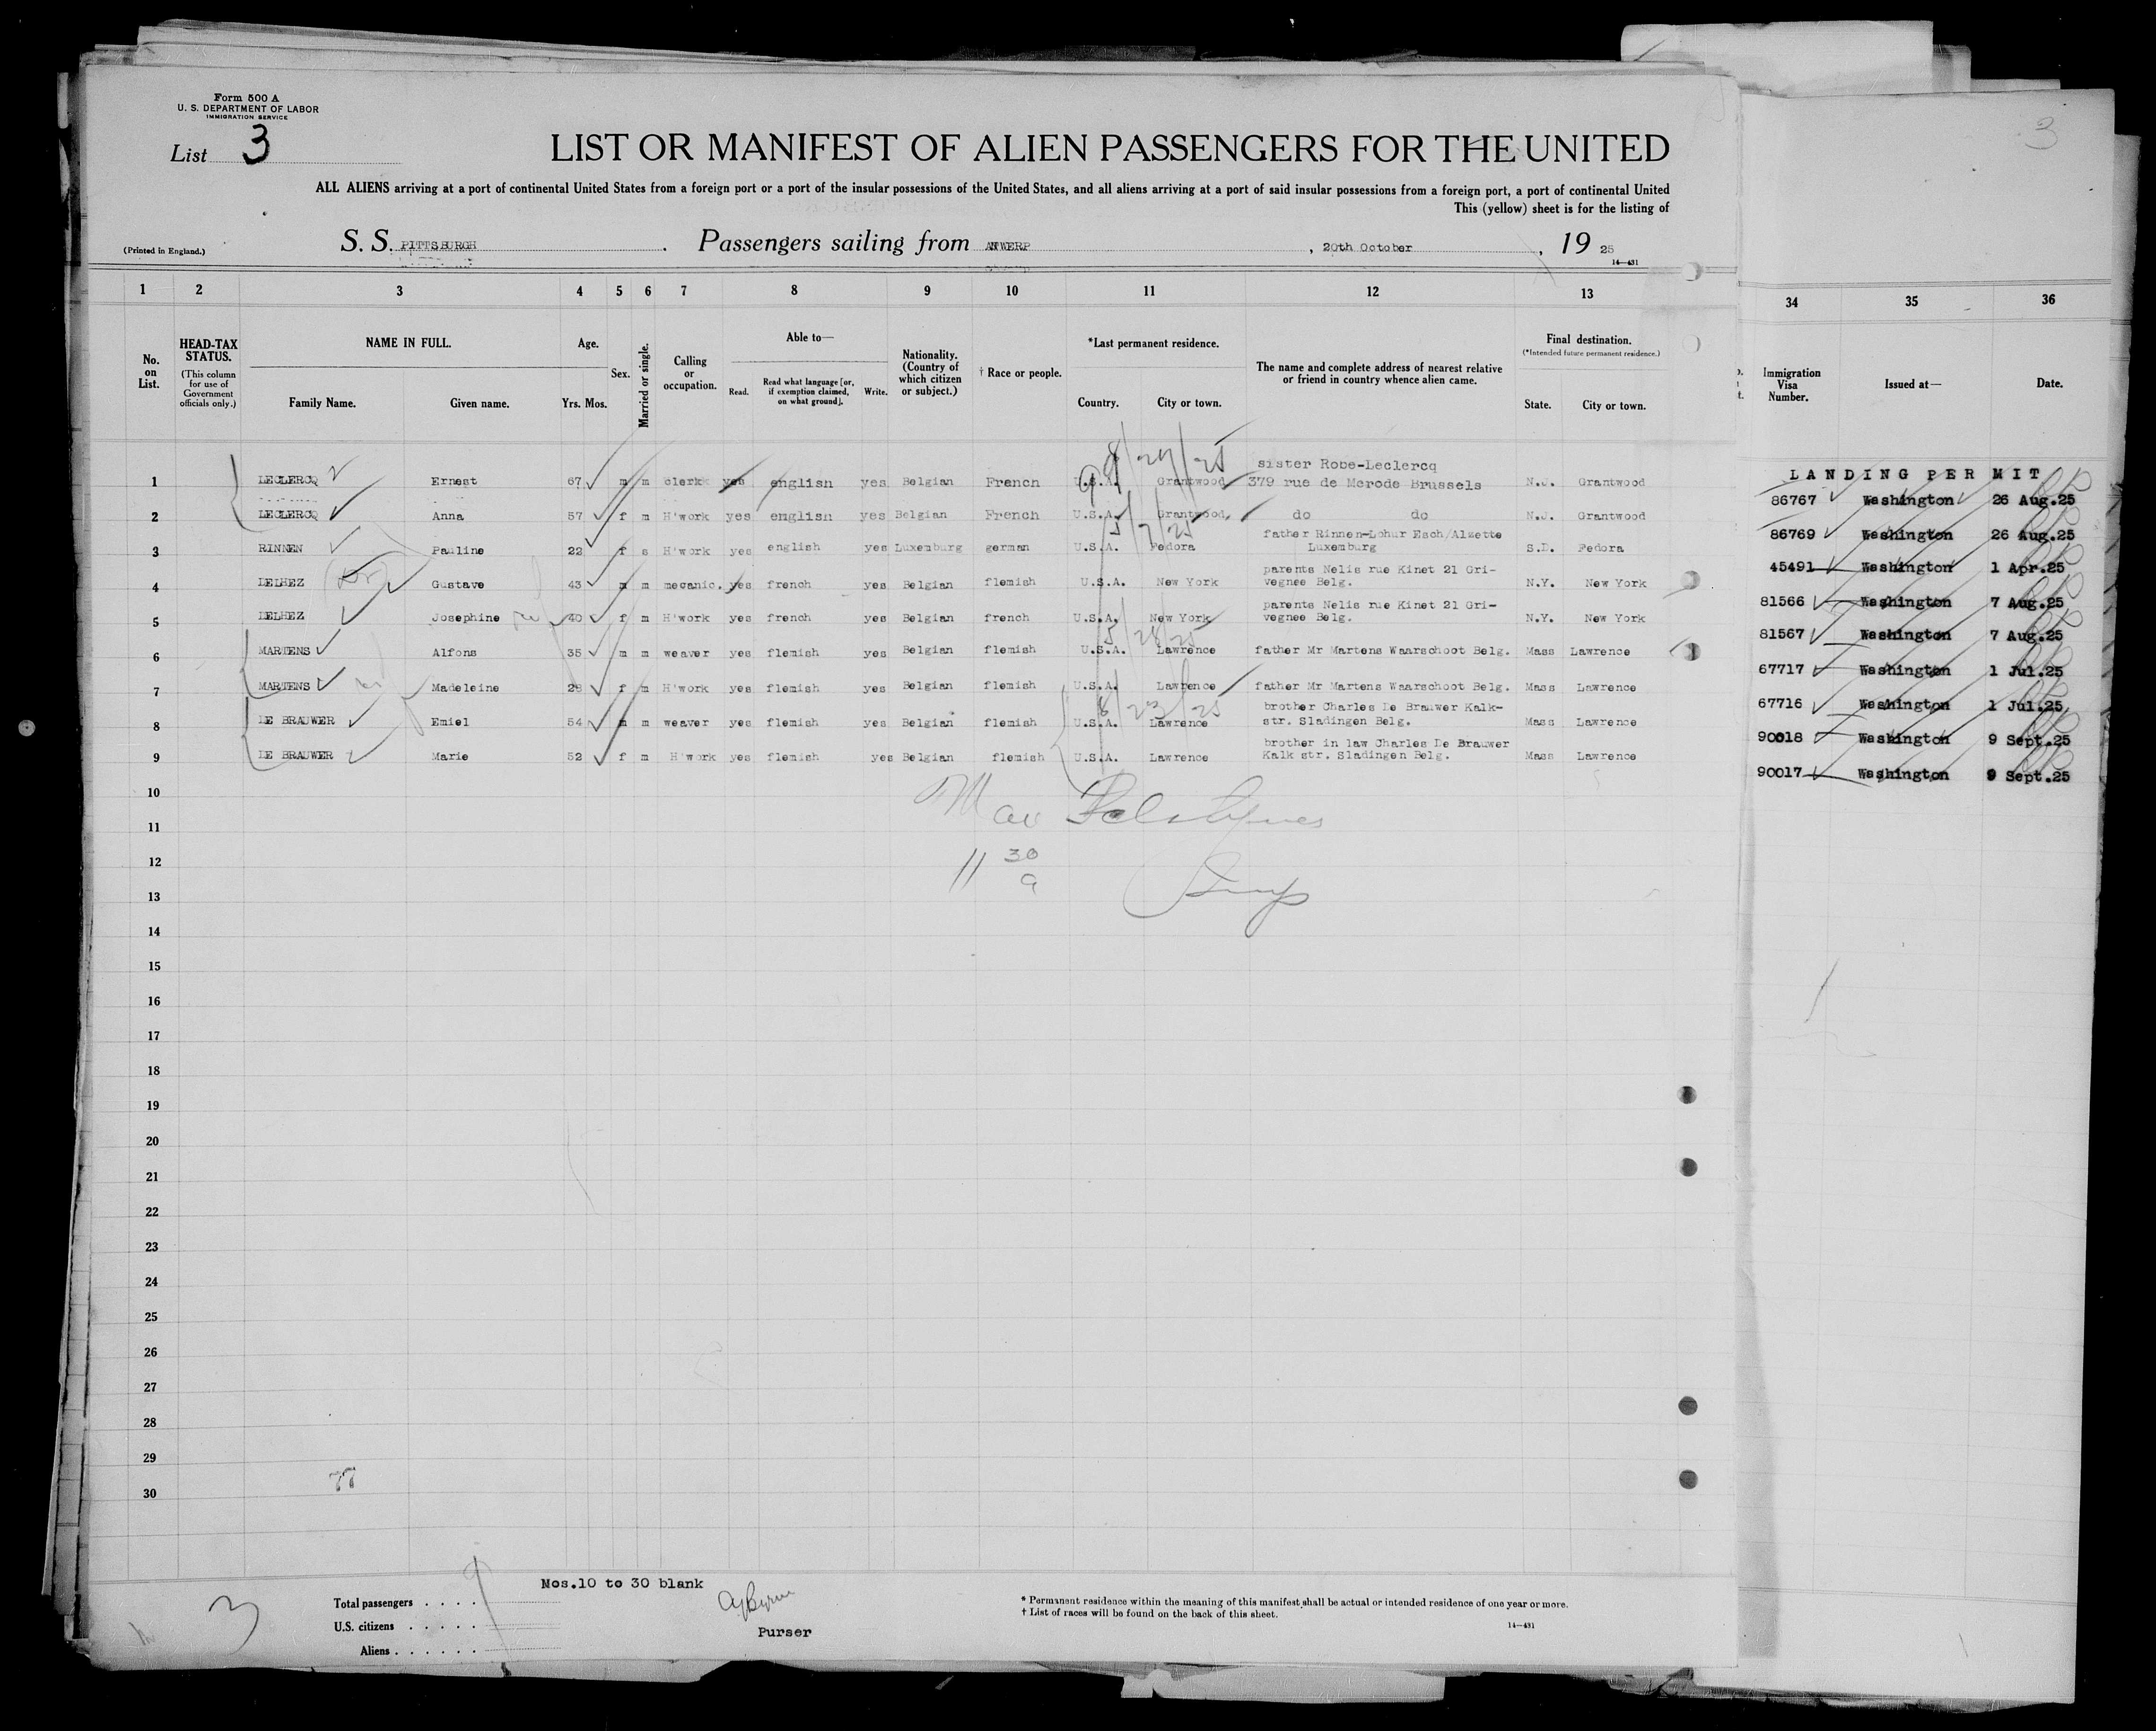 Form 500 A
U. S. DEPARTMENT OF LABOR
IMMIGRATION SERVICE
List 3
LIST OR MANIFEST OF ALIEN PASSENGERS FOR THE UNITED
ALL ALIENS arriving at a port of continental United States from a foreign port or a port of the insular possessions of the United States, and all aliens arriving at a port of said insular possessions from a foreign port, a port of continental United
This (yellow) sheet is for the listing of
(Printed in England.) S. S. PITTSBURGH . Passengers sailing from ANTWERP , 20th October , 19 25
14—431
3
1 2 3 4 5 6 7 8 9 10 11 12 13 34 35 36
No. on List.
HEAD-TAX STATUS.
(This column for use of Government officials only.)
NAME IN FULL.
Family Name. Given name.
Age.
Yrs. Mos.
Sex.
Married or single.
Calling or occupation.
Able to—
Read. Read what language [or, if exemption claimed, on what ground]. Write.
Nationality. (Country of which citizen or subject.)
† Race or people.
*Last permanent residence.
Country. City or town.
The name and complete address of nearest relative or friend in country whence alien came.
Final destination.
(*Intended future permanent residence.)
State. City or town.
Immigration Visa Number.
Issued at—
Date.
LANDING PERMIT
1 LECLERCQ Ernest 67 m m clerk yes english yes Belgian French U.S.A. Grantwood sister Robe-Leclercq 379 rue de Merode Brussels N.J. Grantwood 86767 Washington 26 Aug.25
2 LECLERCQ Anna 57 f m H'work yes english yes Belgian French U.S.A. Grantwood do do N.J. Grantwood 86769 Washington 26 Aug.25
3 RINNEN Pauline 22 f s H'work yes english yes Luxemburg german U.S.A. Fedora father Rinnen-Lohur Esch/Alzette Luxemburg S.D. Fedora 45491 Washington 1 Apr.25
4 DELHEZ Gustave 43 m m mecanic. yes french yes Belgian flemish U.S.A. New York parents Nelis rue Kinet 21 Gri-vegnee Belg. N.Y. New York 81566 Washington 7 Aug.25
5 DELHEZ Josephine 40 f m H'work yes french yes Belgian french U.S.A. New York parents Nelis rue Kinet 21 Gri-vegnee Belg. N.Y. New York 81567 Washington 7 Aug.25
6 MARTENS Alfons 35 m m weaver yes flemish yes Belgian flemish U.S.A. Lawrence father Mr Martens Waarschoot Belg. Mass Lawrence 67717 Washington 1 Jul.25
7 MARTENS Madeleine 28 f m H'work yes flemish yes Belgian flemish U.S.A. Lawrence father Mr Martens Waarschoot Belg. Mass Lawrence 67716 Washington 1 Jul.25
8 DE BRAUWER Emiel 54 m m weaver yes flemish yes Belgian flemish U.S.A. Lawrence brother Charles De Brauwer Kalk-str. Sladingen Belg. Mass Lawrence 90018 Washington 9 Sept.25
9 DE BRAUWER Marie 52 f m H'work yes flemish yes Belgian flemish U.S.A. Lawrence brother in law Charles De Brauwer Kalk str. Sladingen Belg. Mass Lawrence 90017 Washington 9 Sept.25
10
11
12
13
14
15
16
17
18
19
20
21
22
23
24
25
26
27
28
29
30
11 30
9
77
Nos.10 to 30 blank
3
Total passengers . . . . 9
U.S. citizens . . . . .
Aliens . . . . . .
Purser
* Permanent residence within the meaning of this manifest shall be actual or intended residence of one year or more.
† List of races will be found on the back of this sheet.
14—431